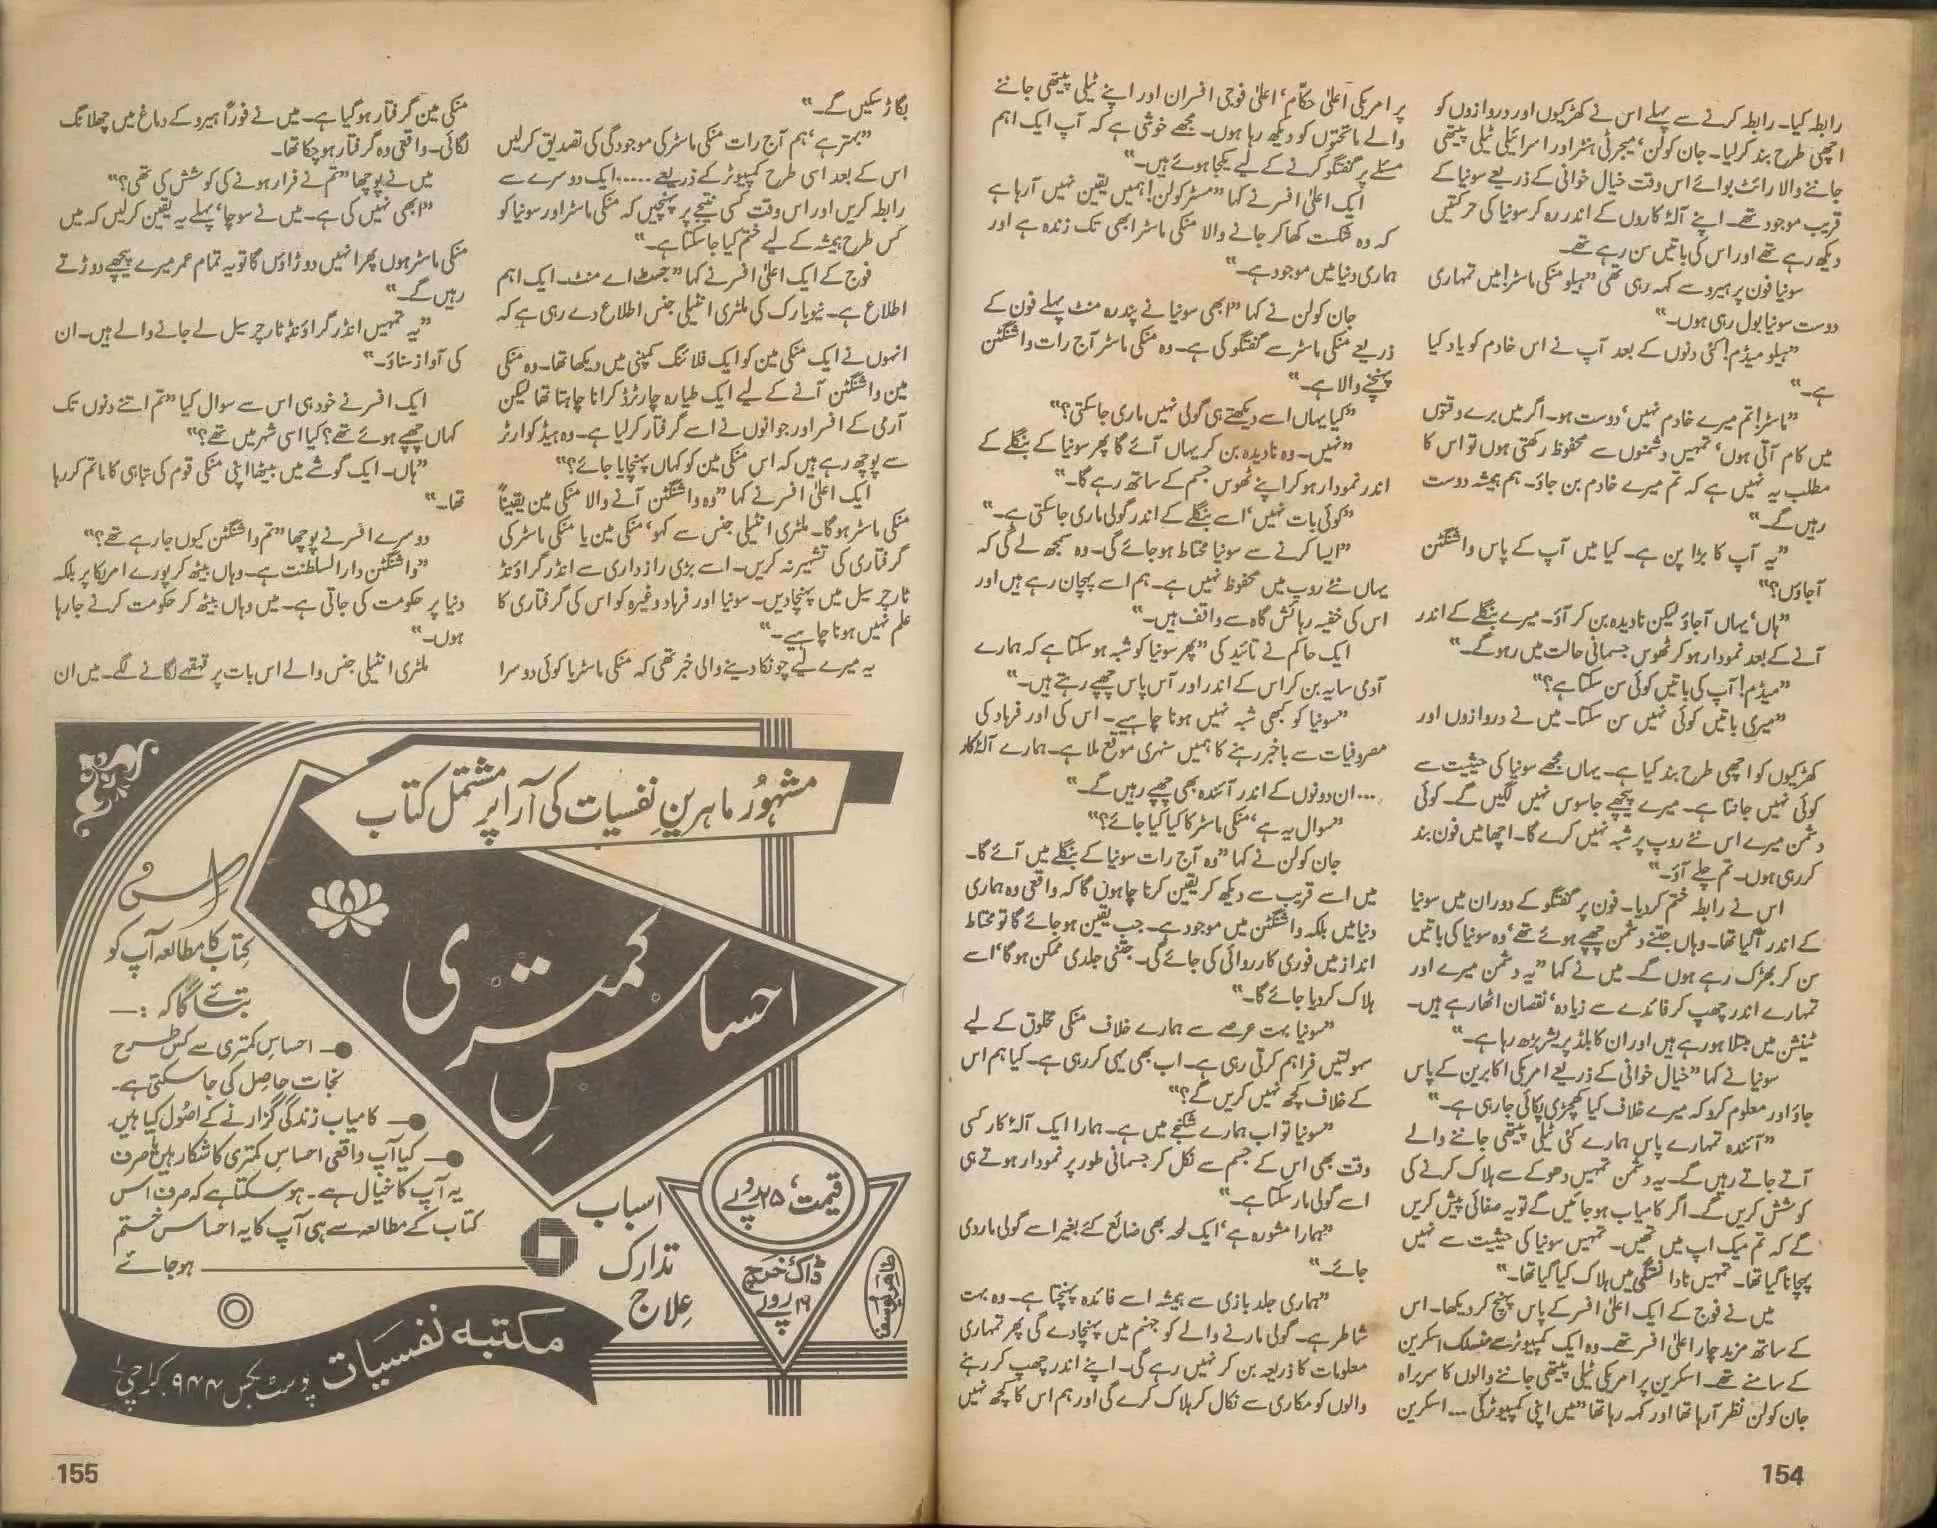 رابطہ کیا۔ رابطہ کرنے سے پہلے اس نے کھڑکیوں اور دروازوں کو
اچھی طرح بند کرلیا۔ جان کولن، میجر ٹی ہنٹر اور اسرائیلی ٹیلی پیتھی
جاننے والا رائٹ بوائے اس وقت خیال خوانی کے ذریعے سونیا کے
قریب موجود تھے۔ اپنے آلۂ کاروں کے اندر رہ کر سونیا کی حرکتیں
دیکھ رہے تھے اور اس کی باتیں سن رہے تھے۔
سونیا فون پر ہیرو سے کہہ رہی تھی "ہیلو منکی ماسٹر! میں تمہاری
دوست سونیا بول رہی ہوں۔"
"ہیلو میڈم! کئی دنوں کے بعد آپ نے اس خادم کو یاد کیا
ہے۔"
"ماسٹر! تم میرے خادم نہیں، دوست ہو۔ اگر میں برے وقتوں
میں کام آتی ہوں، تمہیں دشمنوں سے محفوظ رکھتی ہوں تو اس کا
مطلب یہ نہیں ہے کہ تم میرے خادم بن جاؤ۔ ہم ہمیشہ دوست
رہیں گے۔"
"یہ آپ کا بڑا پن ہے۔ کیا میں آپ کے پاس واشنگٹن
آجاؤں؟"
"ہاں، یہاں آجاؤ لیکن نادیدہ بن کر آؤ۔ میرے بنگلے کے اندر
آنے کے بعد نمودار ہو کر ٹھوس جسمانی حالت میں رہو گے۔"
"میڈم! آپ کی باتیں کوئی سن سکتا ہے؟"
"میری باتیں کوئی نہیں سن سکتا۔ میں نے دروازوں اور
کھڑکیوں کو اچھی طرح بند کیا ہے۔ یہاں مجھے سونیا کی حیثیت سے
کوئی نہیں جانتا ہے۔ میرے پیچھے جاسوس نہیں لگیں گے۔ کوئی
دشمن میرے اس نئے روپ پر شبہ نہیں کرے گا۔ اچھا میں فون بند
کررہی ہوں۔ تم چلے آؤ۔"
اس نے رابطہ ختم کردیا۔ فون پر گفتگو کے دوران میں سونیا
کے اندر آگیا تھا۔ وہاں جتنے دشمن چھپے ہوئے تھے، وہ سونیا کی باتیں
سن کر بھڑک رہے ہوں گے۔ میں نے کہا "یہ دشمن میرے اور
تمہارے اندر چھپ کر فائدے سے زیادہ، نقصان اٹھا رہے ہیں۔
ٹینشن میں مبتلا ہورہے ہیں اور ان کا بلڈ پریشر بڑھ رہا ہے۔"
سونیا نے کہا "خیال خوانی کے ذریعے امریکی اکابرین کے پاس
جاؤ اور معلوم کرو کہ میرے خلاف کیا کھچڑی پکائی جارہی ہے۔"
"آئندہ تمہارے پاس ہمارے کئی ٹیلی پیتھی جاننے والے
آتے جاتے رہیں گے۔ یہ دشمن تمہیں دھوکے سے ہلاک کرنے کی
کوشش کریں گے۔ اگر کامیاب ہوجائیں گے تو یہ صفائی پیش کریں
گے کہ تم میک اپ میں تھیں۔ تمہیں سونیا کی حیثیت سے نہیں
پہچانا گیا تھا۔ تمہیں نادانستگی میں ہلاک کیا گیا تھا۔"
میں نے فوج کے ایک اعلیٰ افسر کے پاس پہنچ کر دیکھا۔ اس
کے ساتھ مزید چار اعلیٰ افسر تھے۔ وہ ایک کمپیوٹر سے منسلک اسکرین
کے سامنے تھے۔ اسکرین پر امریکی ٹیلی پیتھی جاننے والوں کا سربراہ
جان کولن نظر آرہا تھا اور کہہ رہا تھا "میں اپنی کمپیوٹر کی ... اسکرین
پر امریکی اعلیٰ حکام، اعلیٰ فوجی افسران اور اپنے ٹیلی پیتھی جاننے
والے ماتحتوں کو دیکھ رہا ہوں۔ مجھے خوشی ہے کہ آپ ایک اہم
مسئلے پر گفتگو کرنے کے لیے یکجا ہوئے ہیں۔"
ایک اعلیٰ افسر نے کہا "مسٹر کولن! ہمیں یقین نہیں آرہا ہے
کہ وہ شکست کھا کر جانے والا منکی ماسٹر ابھی تک زندہ ہے اور
ہماری دنیا میں موجود ہے۔"
جان کولن نے کہا "ابھی سونیا نے پندرہ منٹ پہلے فون کے
ذریعے منکی ماسٹر سے گفتگو کی ہے۔ وہ منکی ماسٹر آج رات واشنگٹن
پہنچنے والا ہے۔"
"کیا یہاں اسے دیکھتے ہی گولی نہیں ماری جاسکتی؟"
"نہیں۔ وہ نادیدہ بن کر یہاں آئے گا پھر سونیا کے بنگلے کے
اندر نمودار ہو کر اپنے ٹھوس جسم کے ساتھ رہے گا۔"
"کوئی بات نہیں، اسے بنگلے کے اندر گولی ماری جاسکتی ہے۔"
"ایسا کرنے سے سونیا محتاط ہوجائے گی۔ وہ سمجھ لے گی کہ
یہاں نئے روپ میں محفوظ نہیں ہے۔ ہم اسے پہچان رہے ہیں اور
اس کی خفیہ رہائش گاہ سے واقف ہیں۔"
ایک حاکم نے تائید کی "پھر سونیا کو شبہ ہوسکتا ہے کہ ہمارے
آدمی سایہ بن کر اس کے اندر اور آس پاس چھپے رہتے ہیں۔"
"سونیا کو کبھی شبہ نہیں ہونا چاہیے۔ اس کی اور فرہاد کی
مصروفیات سے باخبر رہنے کا ہمیں سنہری موقع ملا ہے۔ ہمارے آلۂ کار
... ان دونوں کے اندر آئندہ بھی چھپے رہیں گے۔"
"سوال یہ ہے، منکی ماسٹر کا کیا کیا جائے؟"
جان کولن نے کہا "وہ آج رات سونیا کے بنگلے میں آئے گا۔
میں اسے قریب سے دیکھ کر یقین کرنا چاہوں گا کہ واقعی وہ ہماری
دنیا میں بلکہ واشنگٹن میں موجود ہے۔ جب یقین ہوجائے گا تو محتاط
انداز میں فوری کارروائی کی جائے گی۔ جتنی جلدی ممکن ہوگا، اسے
ہلاک کردیا جائے گا۔"
"سونیا بہت عرصے سے ہمارے خلاف منکی مخلوق کے لیے
سہولتیں فراہم کرتی رہی ہے۔ اب بھی یہی کررہی ہے۔ کیا ہم اس
کے خلاف کچھ نہیں کریں گے؟"
"سونیا تو اب ہمارے شکنجے میں ہے۔ ہمارا ایک آلۂ کار کسی
وقت بھی اس کے جسم سے نکل کر جسمانی طور پر نمودار ہوتے ہی
اسے گولی مار سکتا ہے۔"
"ہمارا مشورہ ہے، ایک لمحہ بھی ضائع کئے بغیر اسے گولی ماردی
جائے۔"
"ہماری جلد بازی سے ہمیشہ اسے فائدہ پہنچتا ہے۔ وہ بہت
شاطر ہے۔ گولی مارنے والے کو جہنم میں پہنچادے گی پھر تمہاری
معلومات کا ذریعہ بن کر نہیں رہے گی۔ اپنے اندر چھپ کر رہنے
والوں کو مکاری سے نکال کر ہلاک کرے گی اور ہم اس کا کچھ نہیں
154
بگاڑ سکیں گے۔"
"بہتر ہے، ہم آج رات منکی ماسٹر کی موجودگی کی تصدیق کرلیں
اس کے بعد اسی طرح کمپیوٹر کے ذریعے ..... ایک دوسرے سے
رابطہ کریں اور اس وقت کسی نتیجے پر پہنچیں کہ منکی ماسٹر اور سونیا کو
کس طرح ہمیشہ کے لیے ختم کیا جاسکتا ہے۔"
فوج کے ایک اعلیٰ افسر نے کہا "جسٹ اے منٹ۔ ایک اہم
اطلاع ہے۔ نیویارک کی ملٹری انٹیلی جنس اطلاع دے رہی ہے کہ
انہوں نے ایک منکی مین کو ایک فلائنگ کمپنی میں دیکھا تھا۔ وہ منکی
مین واشنگٹن آنے کے لیے ایک طیارہ چارٹرڈ کرانا چاہتا تھا لیکن
آرمی کے افسر اور جوانوں نے اسے گرفتار کرلیا ہے۔ وہ ہیڈ کوارٹر
سے پوچھ رہے ہیں کہ اس منکی مین کو کہاں پہنچایا جائے؟"
ایک اعلیٰ افسر نے کہا "وہ واشنگٹن آنے والا منکی مین یقیناً
منکی ماسٹر ہوگا۔ ملٹری انٹیلی جنس سے کہو، منکی مین یا منکی ماسٹر کی
گرفتاری کی تشہیر نہ کریں۔ اسے بڑی رازداری سے انڈر گراؤنڈ
ٹارچر سیل میں پہنچادیں۔ سونیا اور فرہاد وغیرہ کو اس کی گرفتاری کا
علم نہیں ہونا چاہیے۔"
یہ میرے لیے چونکا دینے والی خبر تھی کہ منکی ماسٹر یا کوئی دوسرا
منکی مین گرفتار ہوگیا ہے۔ میں نے فوراً ہیرو کے دماغ میں چھلانگ
لگائی۔ واقعی وہ گرفتار ہوچکا تھا۔
میں نے پوچھا "تم نے فرار ہونے کی کوشش کی تھی؟"
"ابھی نہیں کی ہے۔ میں نے سوچا، پہلے یہ یقین کرلیں کہ میں
منکی ماسٹر ہوں پھر انہیں دوڑاؤں گا تو یہ تمام عمر میرے پیچھے دوڑتے
رہیں گے۔"
"یہ تمہیں انڈر گراؤنڈ ٹارچر سیل لے جانے والے ہیں۔ ان
کی آواز سناؤ۔"
ایک افسر نے خود ہی اس سے سوال کیا "تم اتنے دنوں تک
کہاں چھپے ہوئے تھے؟ کیا اسی شہر میں تھے؟"
"ہاں۔ ایک گوشے میں بیٹھا اپنی منکی قوم کی تباہی کا ماتم کررہا
تھا۔"
دوسرے افسر نے پوچھا "تم واشنگٹن کیوں جارہے تھے؟"
"واشنگٹن دارالسلطنت ہے۔ وہاں بیٹھ کر پورے امریکا پر بلکہ
دنیا پر حکومت کی جاتی ہے۔ میں وہاں بیٹھ کر حکومت کرنے جارہا
ہوں۔"
ملٹری انٹیلی جنس والے اس بات پر قہقہے لگانے لگے۔ میں ان
مشہور ماہرینِ نفسیات کی آرا پر مشتمل کتاب
احساسِ کمتری
اس
کتاب کا مطالعہ آپ کو
بتائے گا کہ :—
احساسِ کمتری سے کس طرح
نجات حاصل کی جاسکتی ہے۔
کامیاب زندگی گزارنے کے اصول کیا ہیں۔
کیا آپ واقعی احساسِ کمتری کا شکار ہیں یا صرف
یہ آپ کا خیال ہے۔ ہوسکتا ہے کہ صرف اس
کتاب کے مطالعہ سے ہی آپ کا یہ احساس ختم
ہوجائے
اسباب
تدارک
علاج
قیمت، ۲۵ روپے
ڈاک خرچ
۱۹ روپے
مکتبہ نفسیات پوسٹ بکس ۹۴۴ کراچی ۱
155